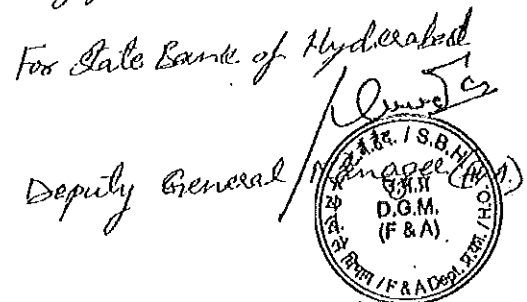 For State Bank of Hyderabad
Deputy General Manager (F&A)
/ S.B.H.
उ.म.प्र
D.G.M.
(F & A)
/ F & A Dept. प्र.का. / H.O.